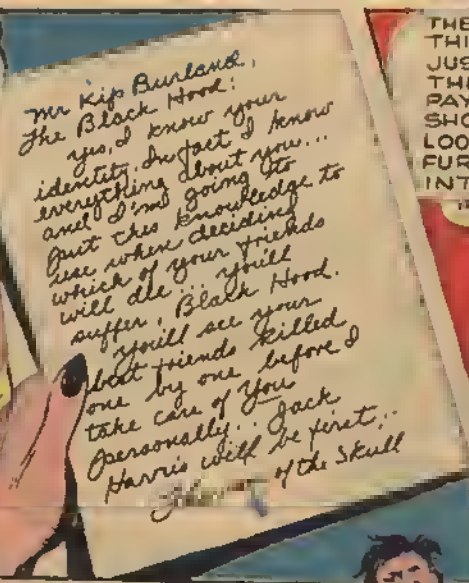 Mr Kip Burland,
The Black Hood:
yes, I know your
identity. In fact I know
everything about you...
and I'm going to
put this knowledge to
use when deciding
which of your friends
will die... you'll
suffer, Black Hood.
you'll see your
best friends killed
one by one before I
take care of you
personally.. Jack
Harris will be first..
of the Skull
THE
THI
JUS
THE
PAY
SHO
LOO
FUR
INT